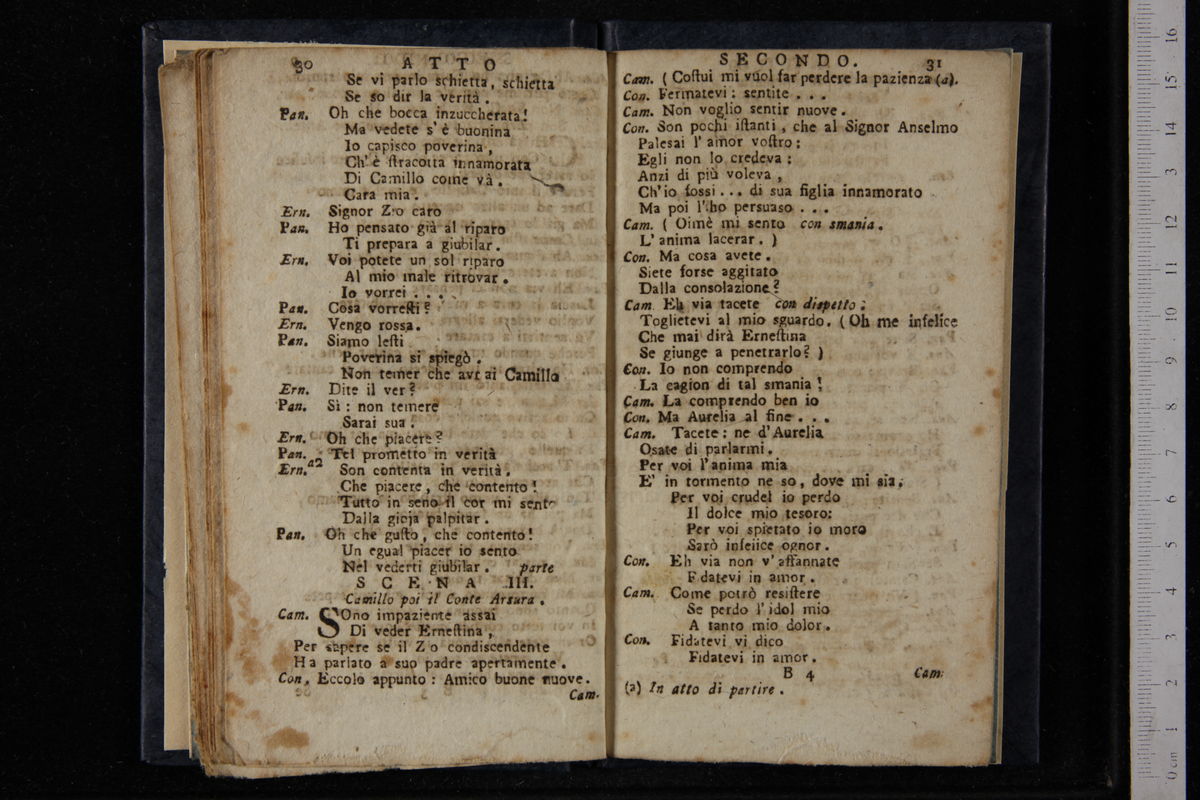 30 ATTO
Se vi parlo schietta, schietta
Se so dir la verità.
Pan. Oh che bocca inzuccherata!
Ma vedete s' è buonina
Io capisco poverina,
Ch' è ſtracotta innamorata
Di Camillo come và.
Cara mia.
Ern. Signor Zio caro
Pan. Ho pensato già al riparo
Ti prepara a giubilar.
Ern. Voi potete un sol riparo
Al mio male ritrovar.
Io vorrei . . .
Pan. Cosa vorreſti?
Ern. Vengo rossa.
Pan. Siamo leſti
Poverina si spiegò.
Non temer che avrai Camillo
Ern. Dite il ver?
Pan. Sì: non temere
Sarai sua.
Ern. Oh che piacere?
Pan. Tel prometto in verità
Ern. a2 Son contenta in verità.
Che piacere, che contento!
Tutto in seno il cor mi sento
Dalla gioja palpitar.
Pan. Oh che guſto, che contento!
Un egual piacer io sento
Nel vederti giubilar. parte
SCENA III.
Camillo poi il Conte Arsura.
Cam. SOno impaziente assai
Di veder Erneſtina,
Per sapere se il Zio condiscendente
Ha parlato a suo padre apertamente.
Con. Eccolo appunto: Amico buone nuove.
Cam.
SECONDO. 31
Cam. (Coſtui mi vuol far perdere la pazienza (a).
Con. Fermatevi: sentite . . .
Cam. Non voglio sentir nuove.
Con. Son pochi iſtanti, che al Signor Anselmo
Palesai l' amor voſtro:
Egli non lo credeva:
Anzi di più voleva,
Ch'io fossi... di sua figlia innamorato
Ma poi l'ho persuaso . . .
Cam. (Oimè mi sento con smania.
L' anima lacerar.)
Con. Ma cosa avete.
Siete forse aggitato
Dalla consolazione?
Cam Eh via tacete con dispetto:
Toglietevi al mio sguardo. (Oh me infelice
Che mai dirà Erneſtina
Se giunge a penetrarlo?)
Con. Io non comprendo
La cagion di tal smania!
Cam. La comprendo ben io
Con. Ma Aurelia al fine . . .
Cam. Tacete: ne d'Aurelia
Osate di parlarmi.
Per voi l'anima mia
E' in tormento ne so, dove mi sia.
Per voi crudel io perdo
Il dolce mio tesoro:
Per voi spietato io moro
Sarò infelice ognor.
Con. Eh via non v'affannate
Fidatevi in amor.
Cam. Come potrò resiſtere
Se perdo l'idol mio
A tanto mio dolor.
Con. Fidatevi vi dico
Fidatevi in amor.
B 4 Cam:
(a) In atto di partire.
16
15
14
13
12
11
10
9
8
7
6
5
4
3
2
1
0 cm